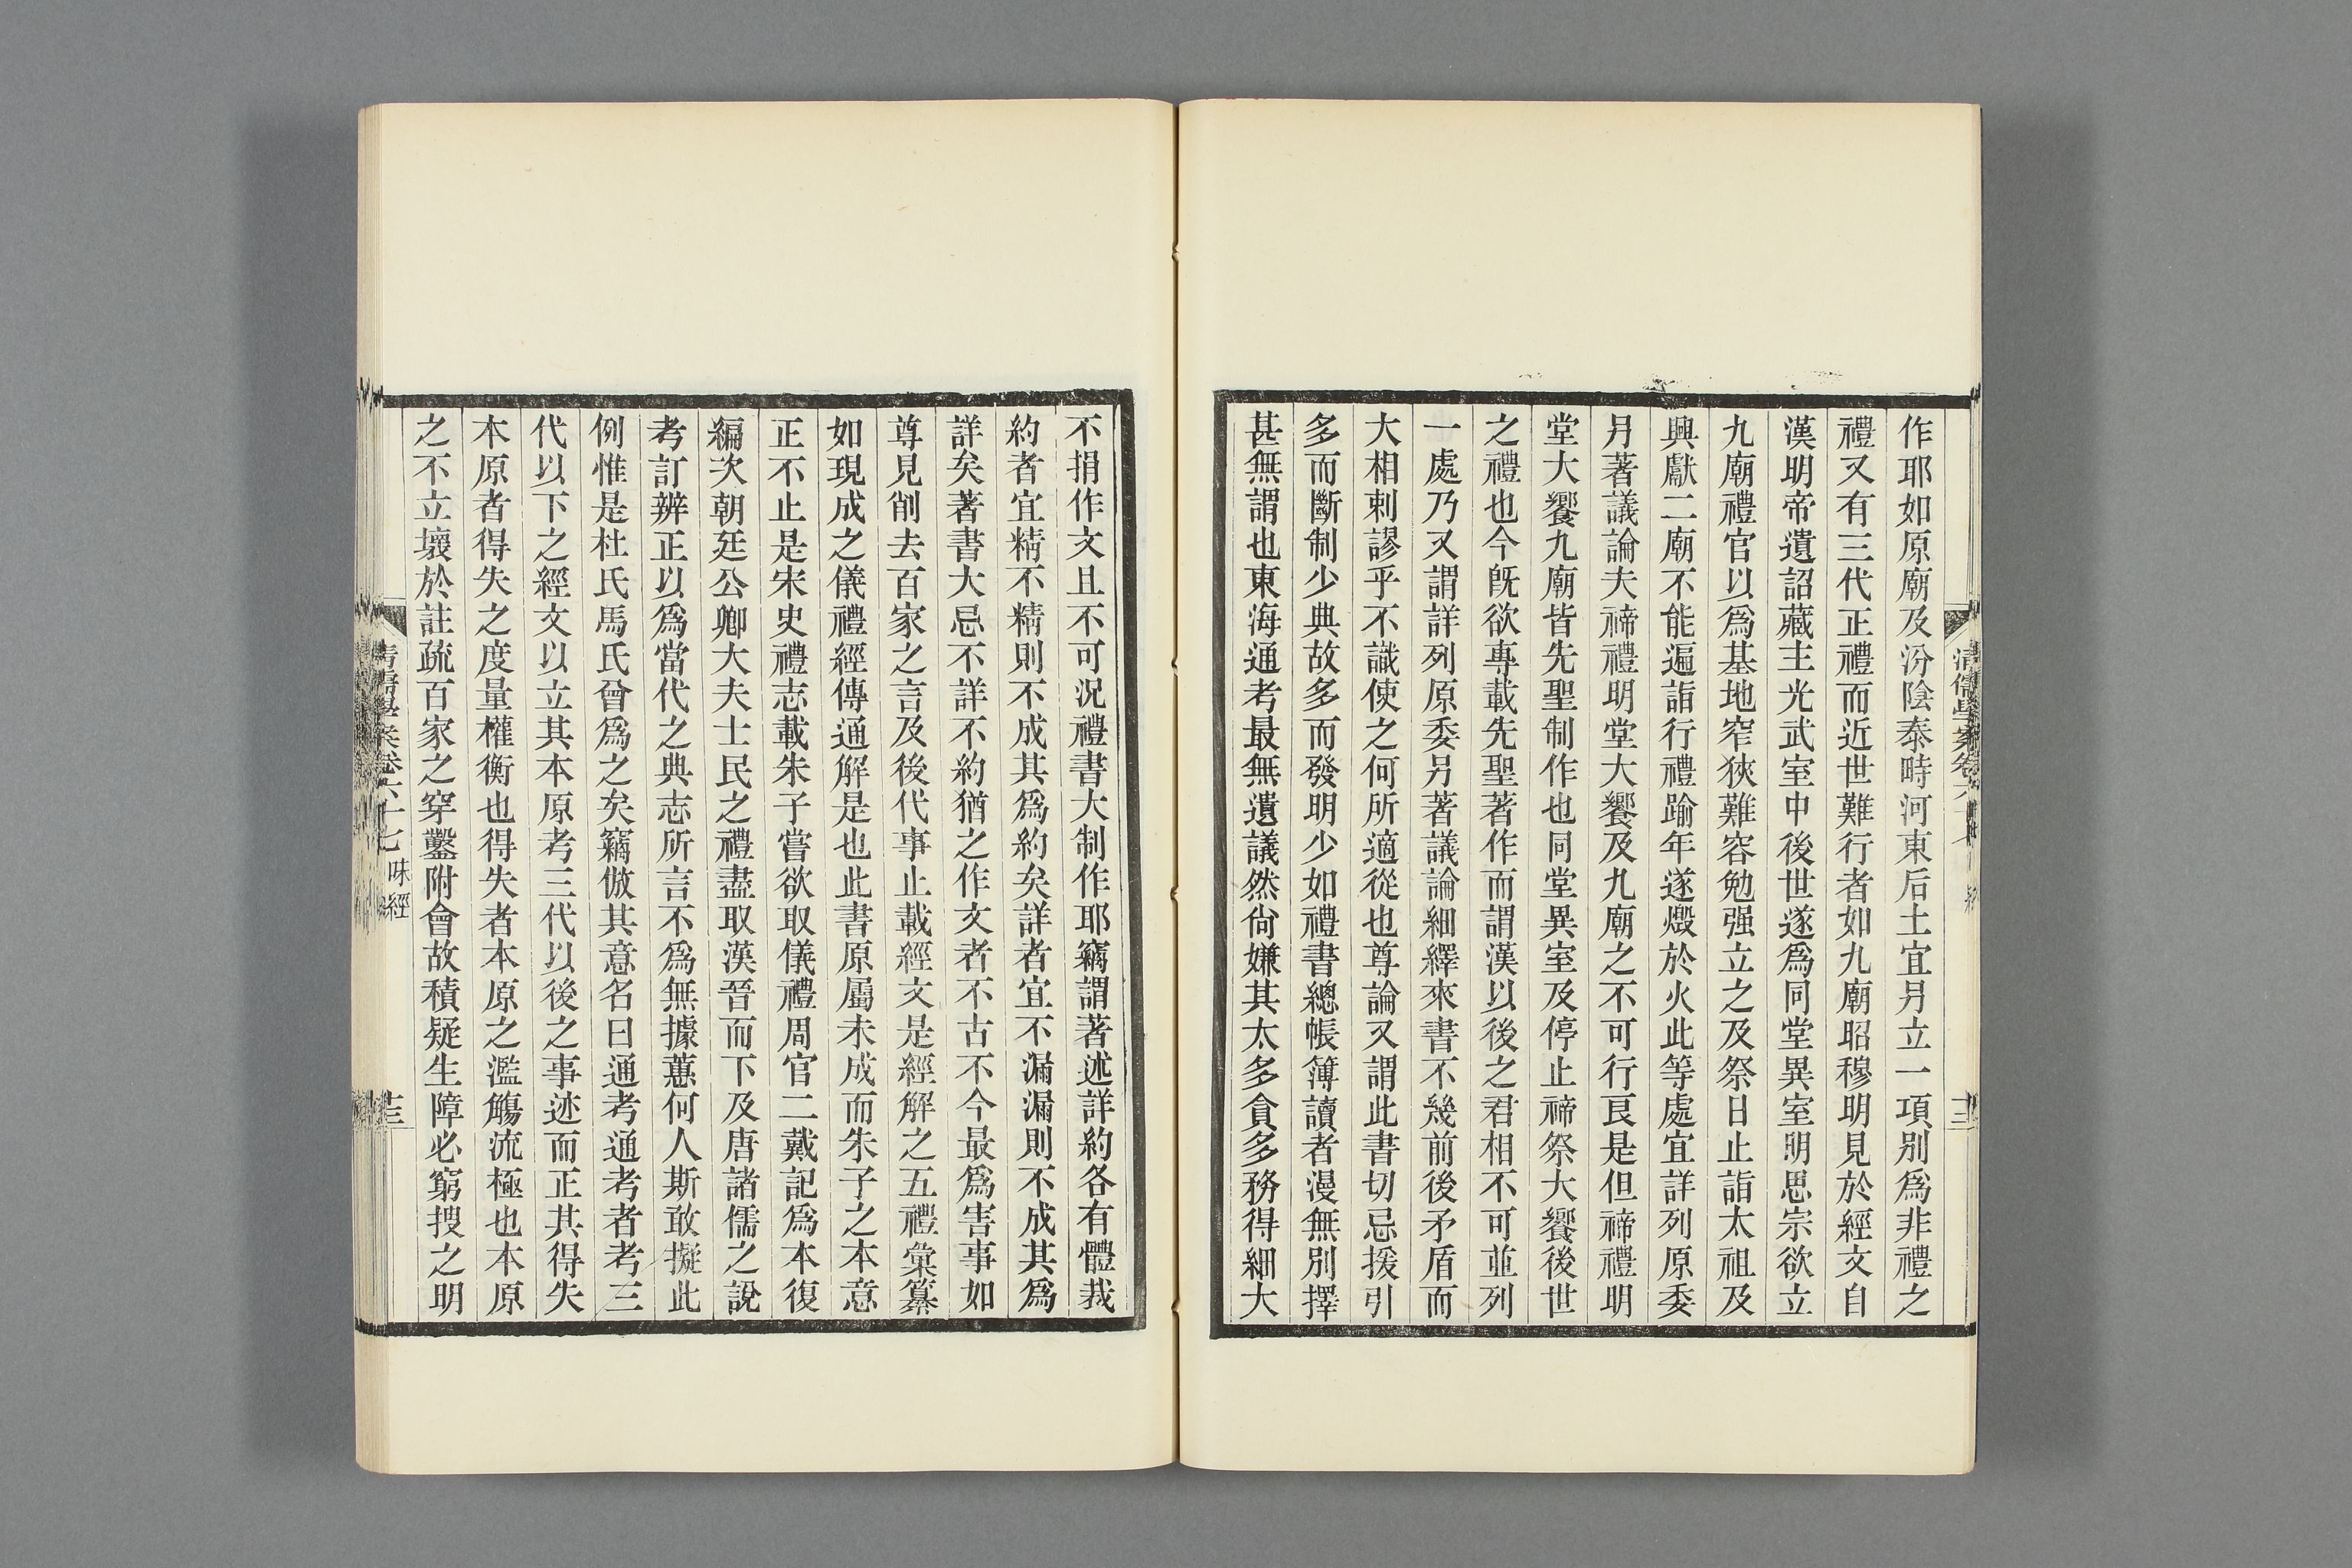 作耶如原廟及汾陰泰畤河東后土宜另立一項別爲非禮之
禮又有三代正禮而近世難行者如九廟昭穆明見於經文自
漢明帝遺詔藏主光武室中後世遂爲同堂異室明思宗欲立
九廟禮官以爲基地窄狹難容勉强立之及祭日止詣太祖及
興獻二廟不能遍詣行禮踰年遂燬於火此等處宜詳列原委
另著議論夫禘禮明堂大饗及九廟之不可行艮是但禘禮明
堂大饗九廟皆先聖制作也同堂異室及停止禘祭大饗後世
之禮也今旣欲專載先聖著作而謂漢以後之君相不可並列
一處乃又謂詳列原委另著議論細繹來書不幾前後矛盾而
大相剌謬乎不識使之何所適從也尊論又謂此書切忌援引
多而斷制少典故多而發明少如禮書總帳簿讀者漫無別擇
甚無謂也東海通考最無遺議然尙嫌其太多貪多務得細大
不捐作文且不可況禮書大制作耶竊謂著述詳約各有體裁
約者宜精不精則不成其爲約矣詳者宜不漏漏則不成其爲
詳矣著書大忌不詳不約猶之作文者不古不今最爲害事如
尊見削去百家之言及後代事止載經文是經解之五禮彙纂
如現成之儀禮經傳通解是也此書原屬未成而朱子之本意
正不止是宋史禮志載朱子嘗欲取儀禮周官二戴記爲本復
編次朝廷公卿大夫士民之禮盡取漢晉而下及唐諸儒之說
考訂辨正以爲當代之典志所言不爲無據蕙何人斯敢擬此
例惟是杜氏馬氏曾爲之矣竊倣其意名曰通考通考者考三
代以下之經文以立其本原考三代以後之事迹而正其得失
本原者得失之度量權衡也得失者本原之濫觴流極也本原
之不立壞於註疏百家之穿鑿附會故積疑生障必窮搜之明
清儒學案卷六十七 味經